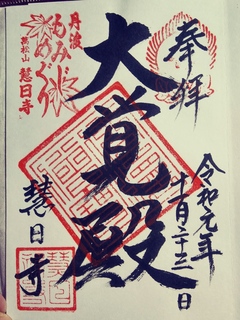 奉拝
大覚殿
令和元年
十一月二十三日
慧日寺
丹波
もみじ
めぐり
慧日寺